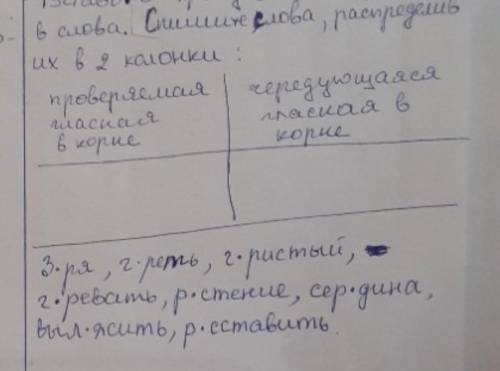 в слова. Спишите слова, распределив
их в 2 колонки :
проверяемая
гласная
в корне
чередующаяся
гласная в
корне
З.ря, г.реть, г.ристый,
г.ревать, р.стение, сер.дина,
выл.ясить, р.сставить.